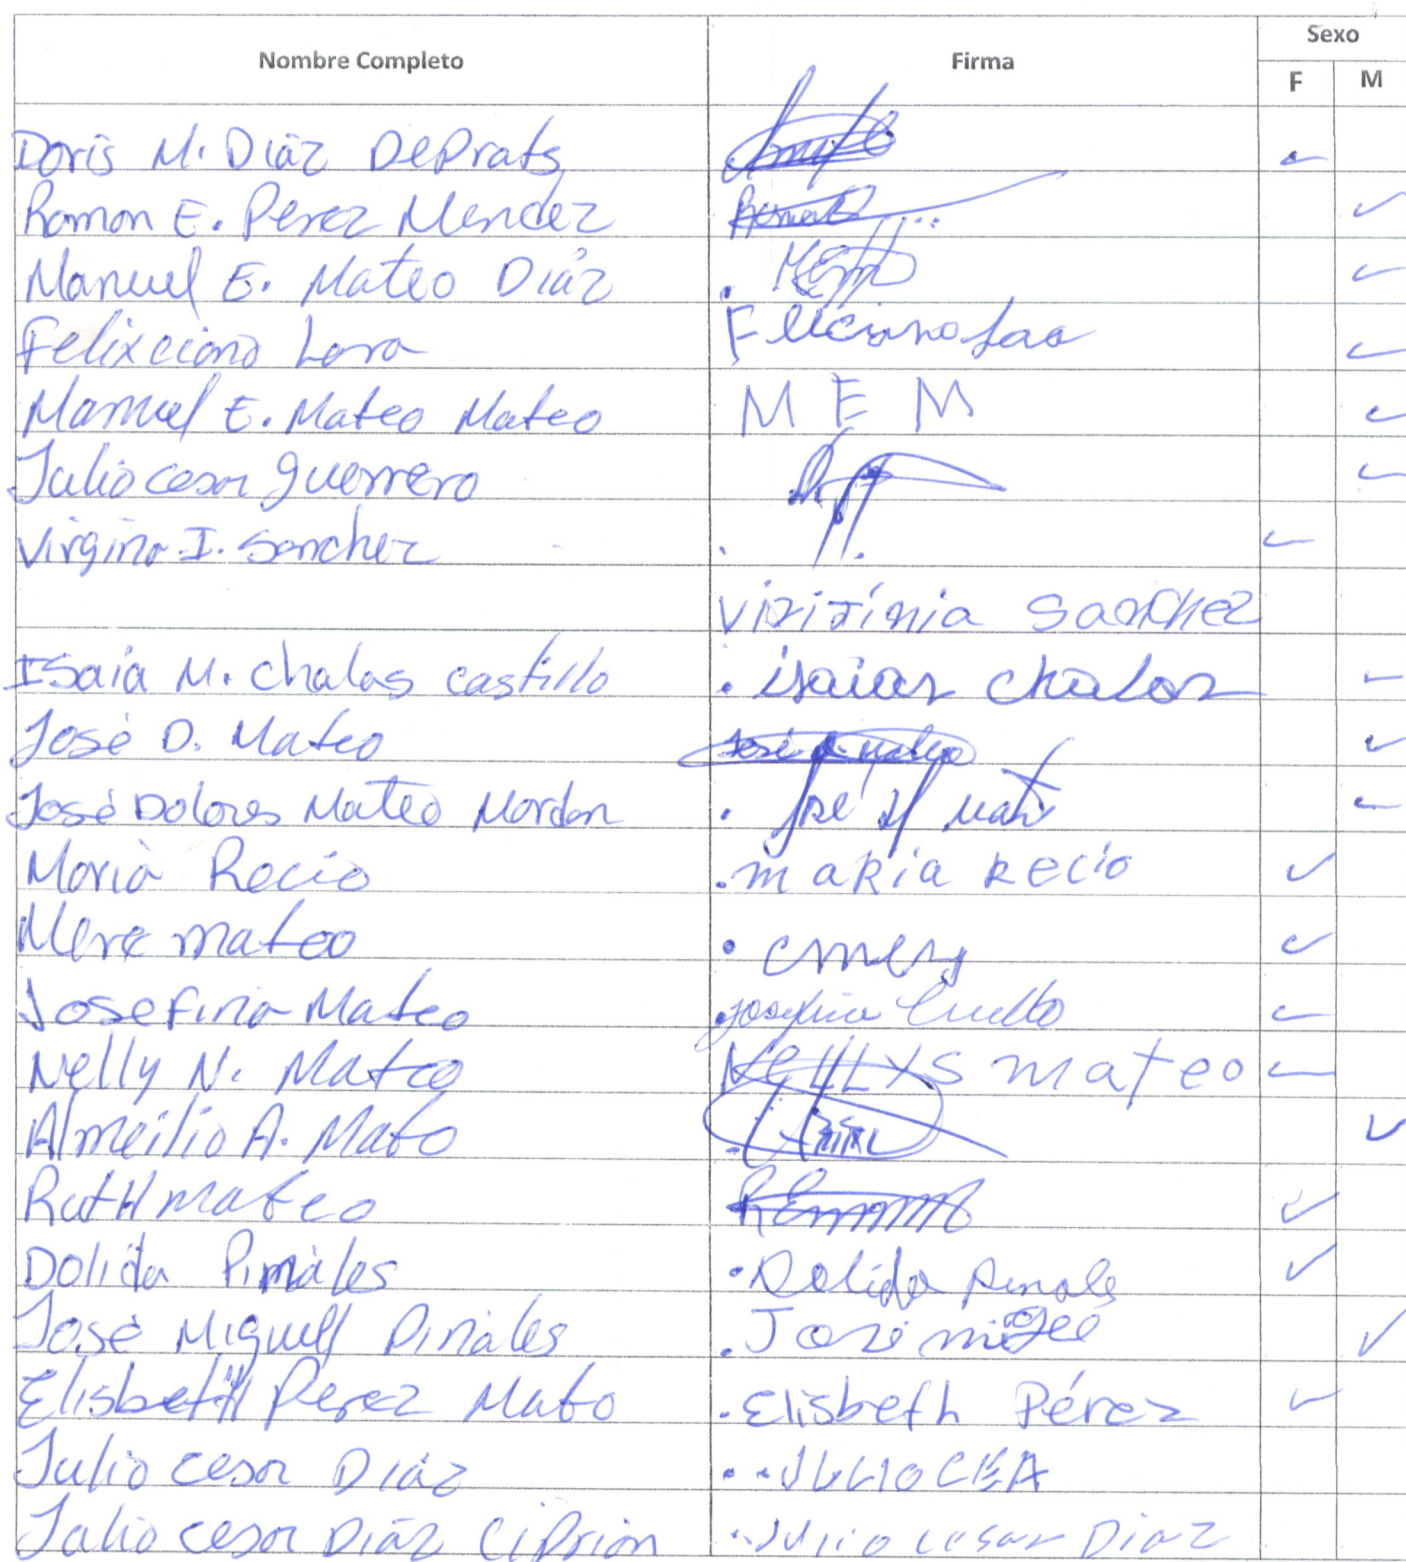 Nombre Completo Firma Sexo
F M
Doris M. Diaz DePrats
Ramon E. Perez Mendez
Manuel E. Mateo Diaz
Felixciano Lara Feliciano Lara
Manuel E. Mateo Mateo M E M
Julio cesar guerrero
Virgina I. Sanchez
Viritinia Sanchez
Isaia M. chalas castillo isaias chalas
José D. Mateo José D mateo
José Dolores Mateo Mordan José
Maria Recio maria Recio
Mere mateo emery
Josefina Mateo josefina Cuello
Nelly N. Mateo Nellys mateo
Almeilio A. Mato
Ruth mateo
Dolida Pinales Dolida pinale
José Miguell Pinales José migel
Elisbeth Perez Mato Elisbeth Pérez
Julio cesar Diaz JULIO CEA
Julio cesar Diaz Ciprian Julio cesar Diaz